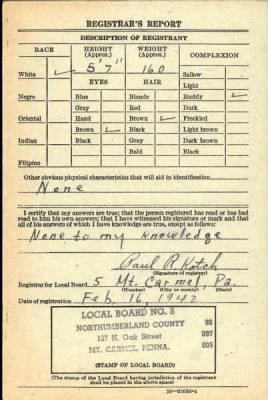 REGISTRAR'S REPORT
DESCRIPTION OF REGISTRANT
RACE HEIGHT (Approx.) WEIGHT (Approx.) COMPLEXION
White ✓ 5'7" 160 Sallow
EYES HAIR Light
Negro Blue Blonde Ruddy ✓
Gray Red Dark
Oriental Hazel Brown ✓ Freckled
Brown ✓ Black Light brown
Indian Black Gray Dark brown
Bald Black
Filipino
Other obvious physical characteristics that will aid in identification
None
I certify that my answers are true; that the person registered has read or has had
read to him his own answers; that I have witnessed his signature or mark and that
all of his answers of which I have knowledge are true, except as follows:
None to my knowledge
Paul R. Kotch
(Signature of registrar)
Registrar for Local Board 5 Mt. Carmel, Pa.
(Number) (City or county) (State)
Date of registration Feb. 16, 1942
LOCAL BOARD NO. 5
NORTHUMBERLAND COUNTY
137 N. Oak Street
MT. CARMEL, PENNA.
097
005
(STAMP OF LOCAL BOARD)
(The stamp of the Local Board having jurisdiction of the registrant
shall be placed in the above space)